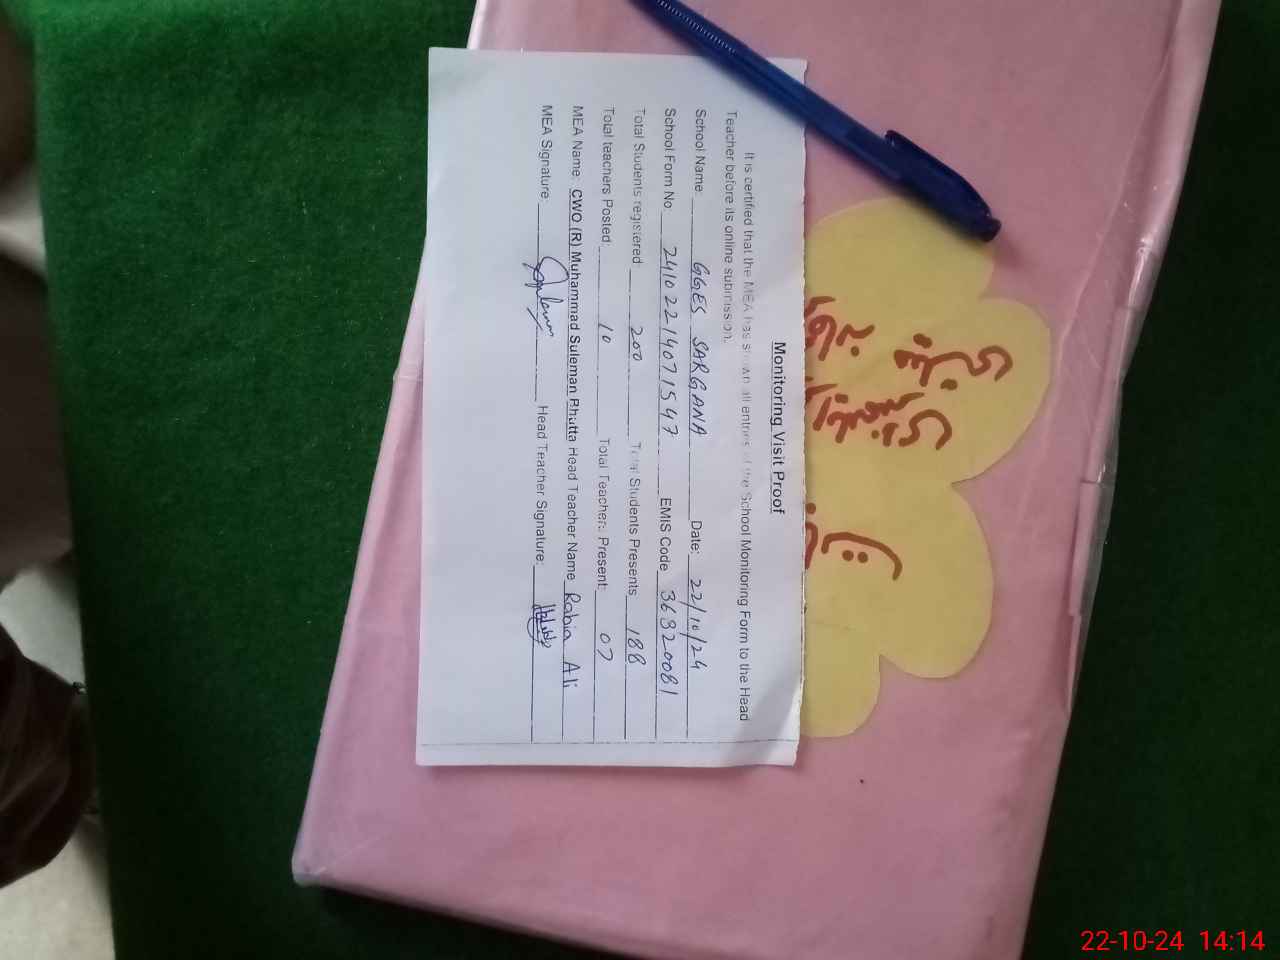 Monitoring Visit Proof
It is certified that the MEA has shown all entries of the School Monitoring Form to the Head
Teacher before its online submission.
School Name: GGES SARGANA Date: 22/10/24
School Form No. 24102214071547 EMIS Code 36320081
Total Students registered: 200 Total Students Presents 188
Total teachers Posted: 10 Total Teachers Present: 07
MEA Name: CWO (R) Muhammad Suleman Bhutta Head Teacher Name Rabia Ali
MEA Signature: Head Teacher Signature:
22-10-24 14:14